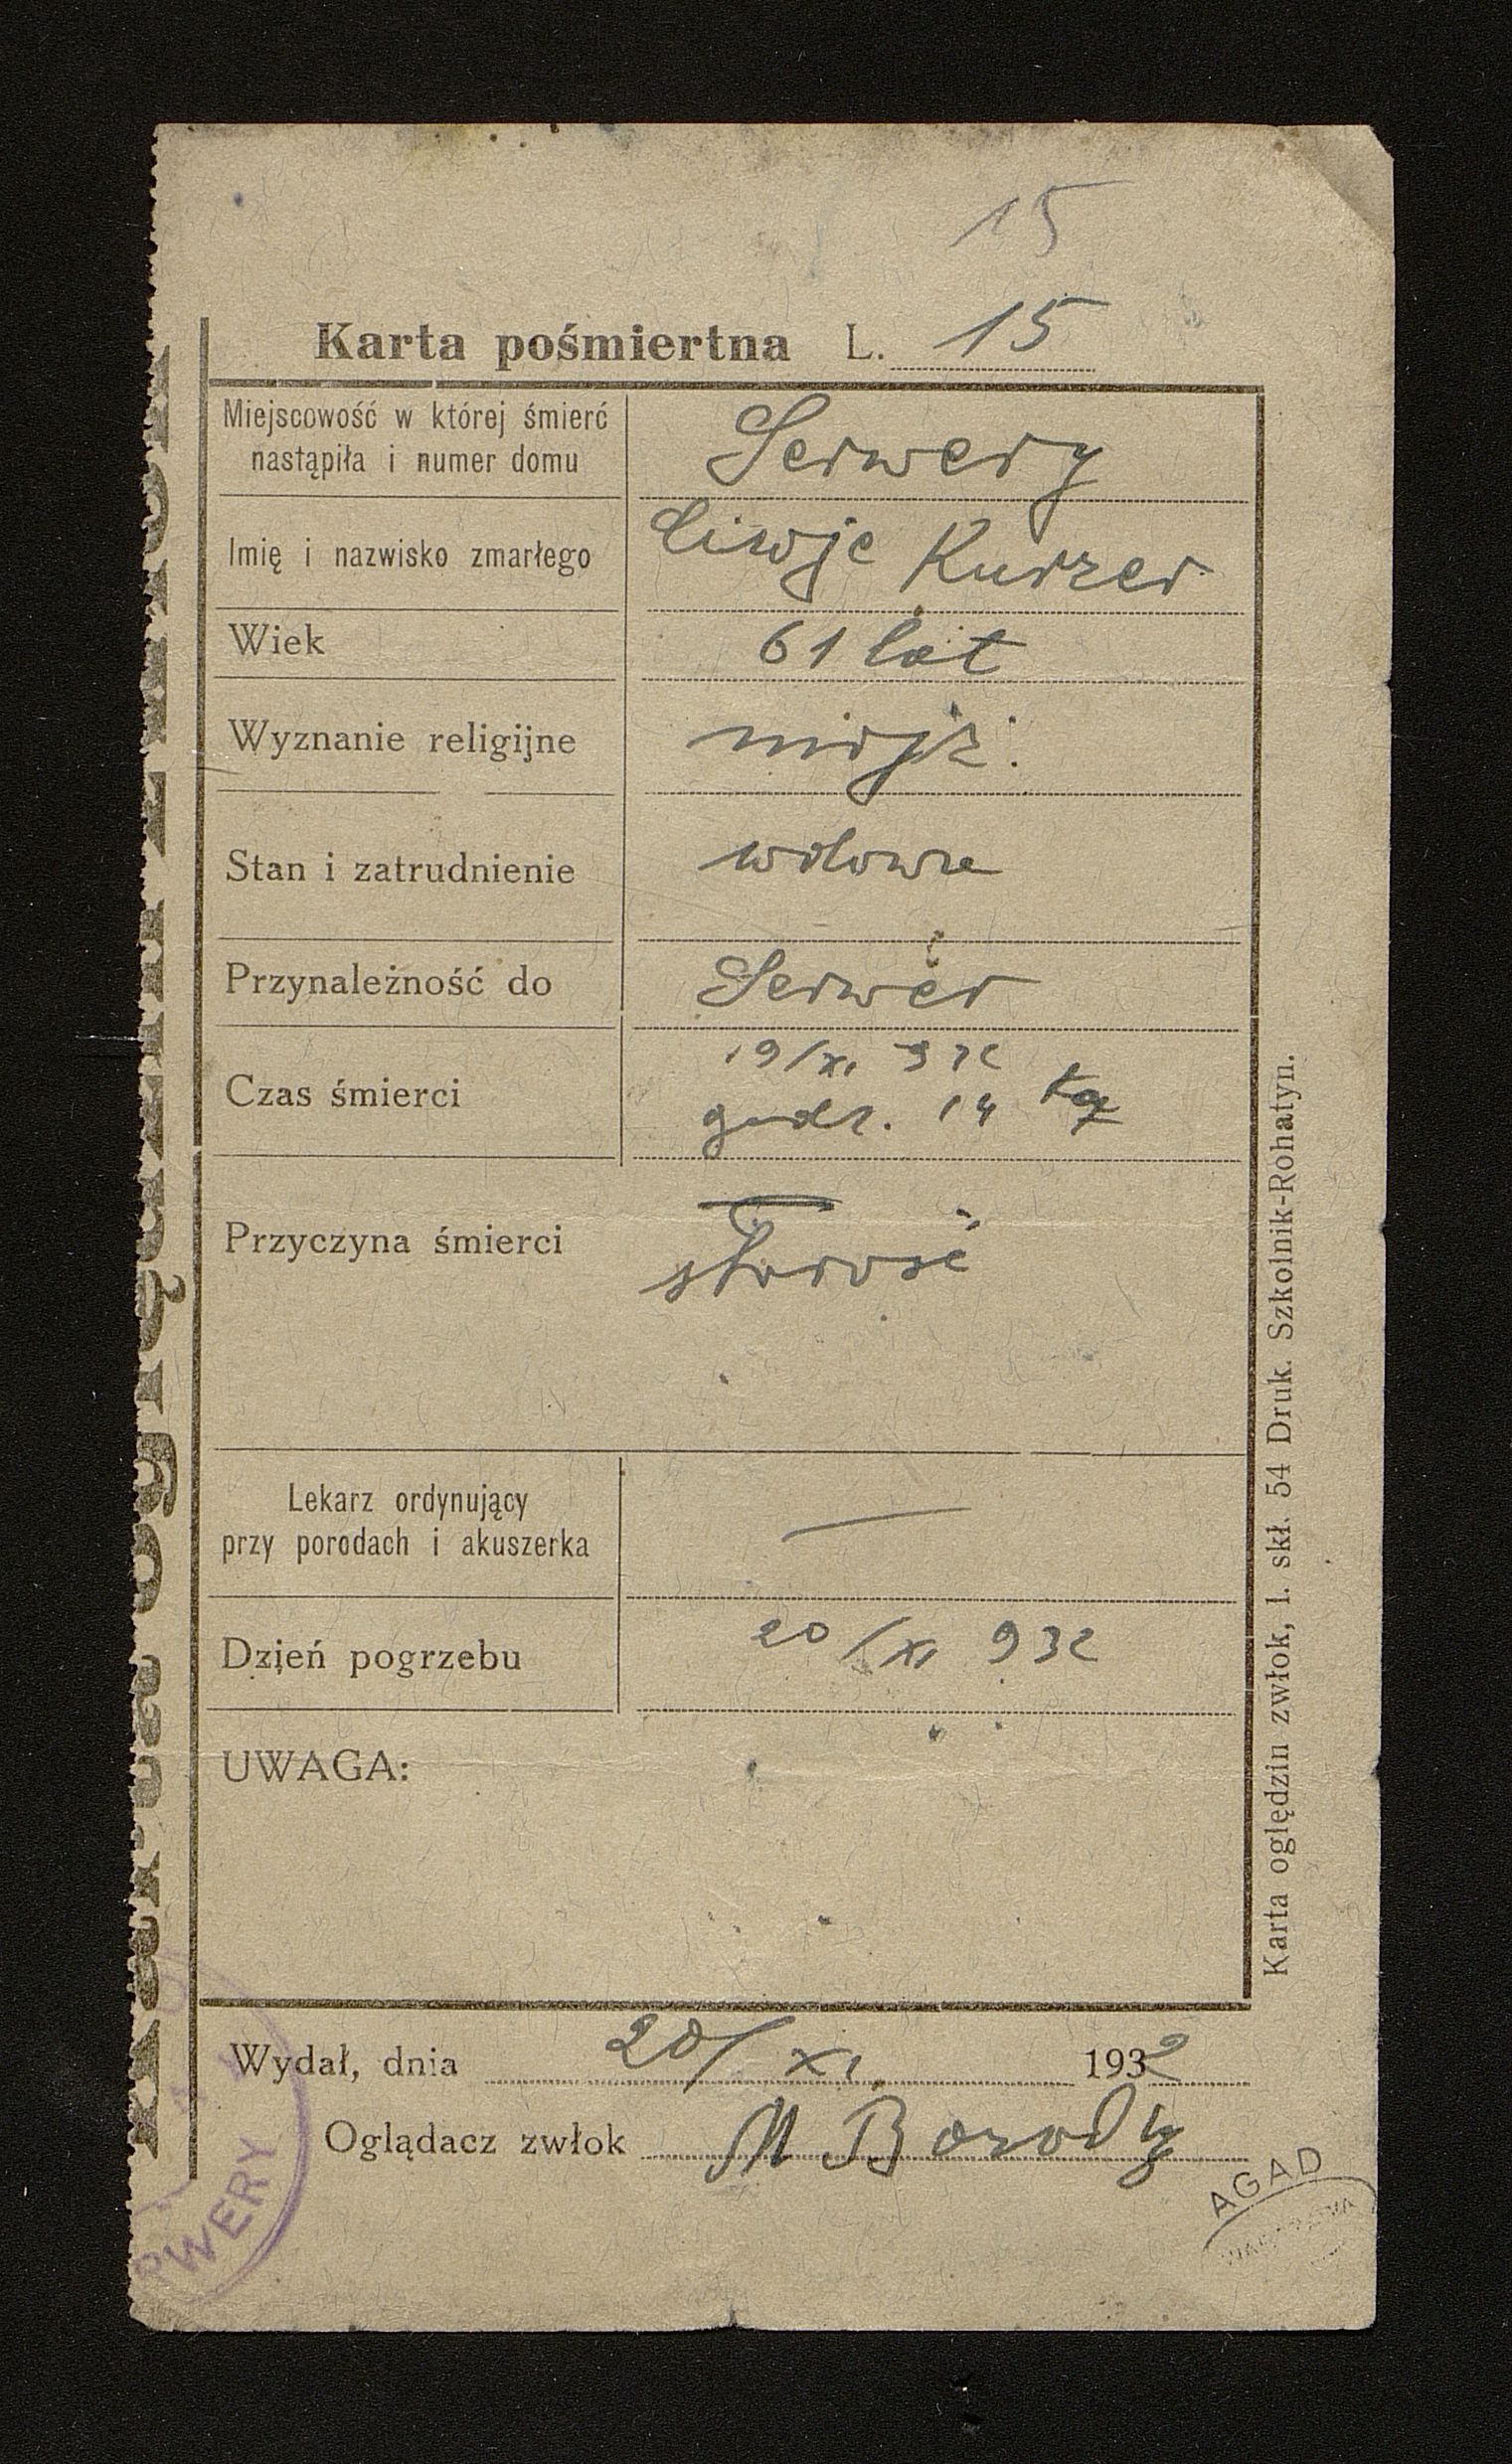 15
Karta pośmiertna L. 15
Miejscowość w której śmierć
nastąpiła i numer domu
Serwery
Imię i nazwisko zmarłego
Kurzer
Wiek
61 lat
Wyznanie religijne
mojż.
Stan i zatrudnienie
wdowa
Przynależność do
Serwer
Czas śmierci
19/XI 932
godz. 14
Przyczyna śmierci
starość
Lekarz ordynujący
przy porodach i akuszerka
—
Dzień pogrzebu
20/XI 932
UWAGA:
Wydał, dnia 20/XI. 1932
Oglądacz zwłok M Borody
Karta oględzin zwłok, l. skł. 54 Druk. Szkolnik-Rohatyn.
RWERY
AGAD
WARSZAWA